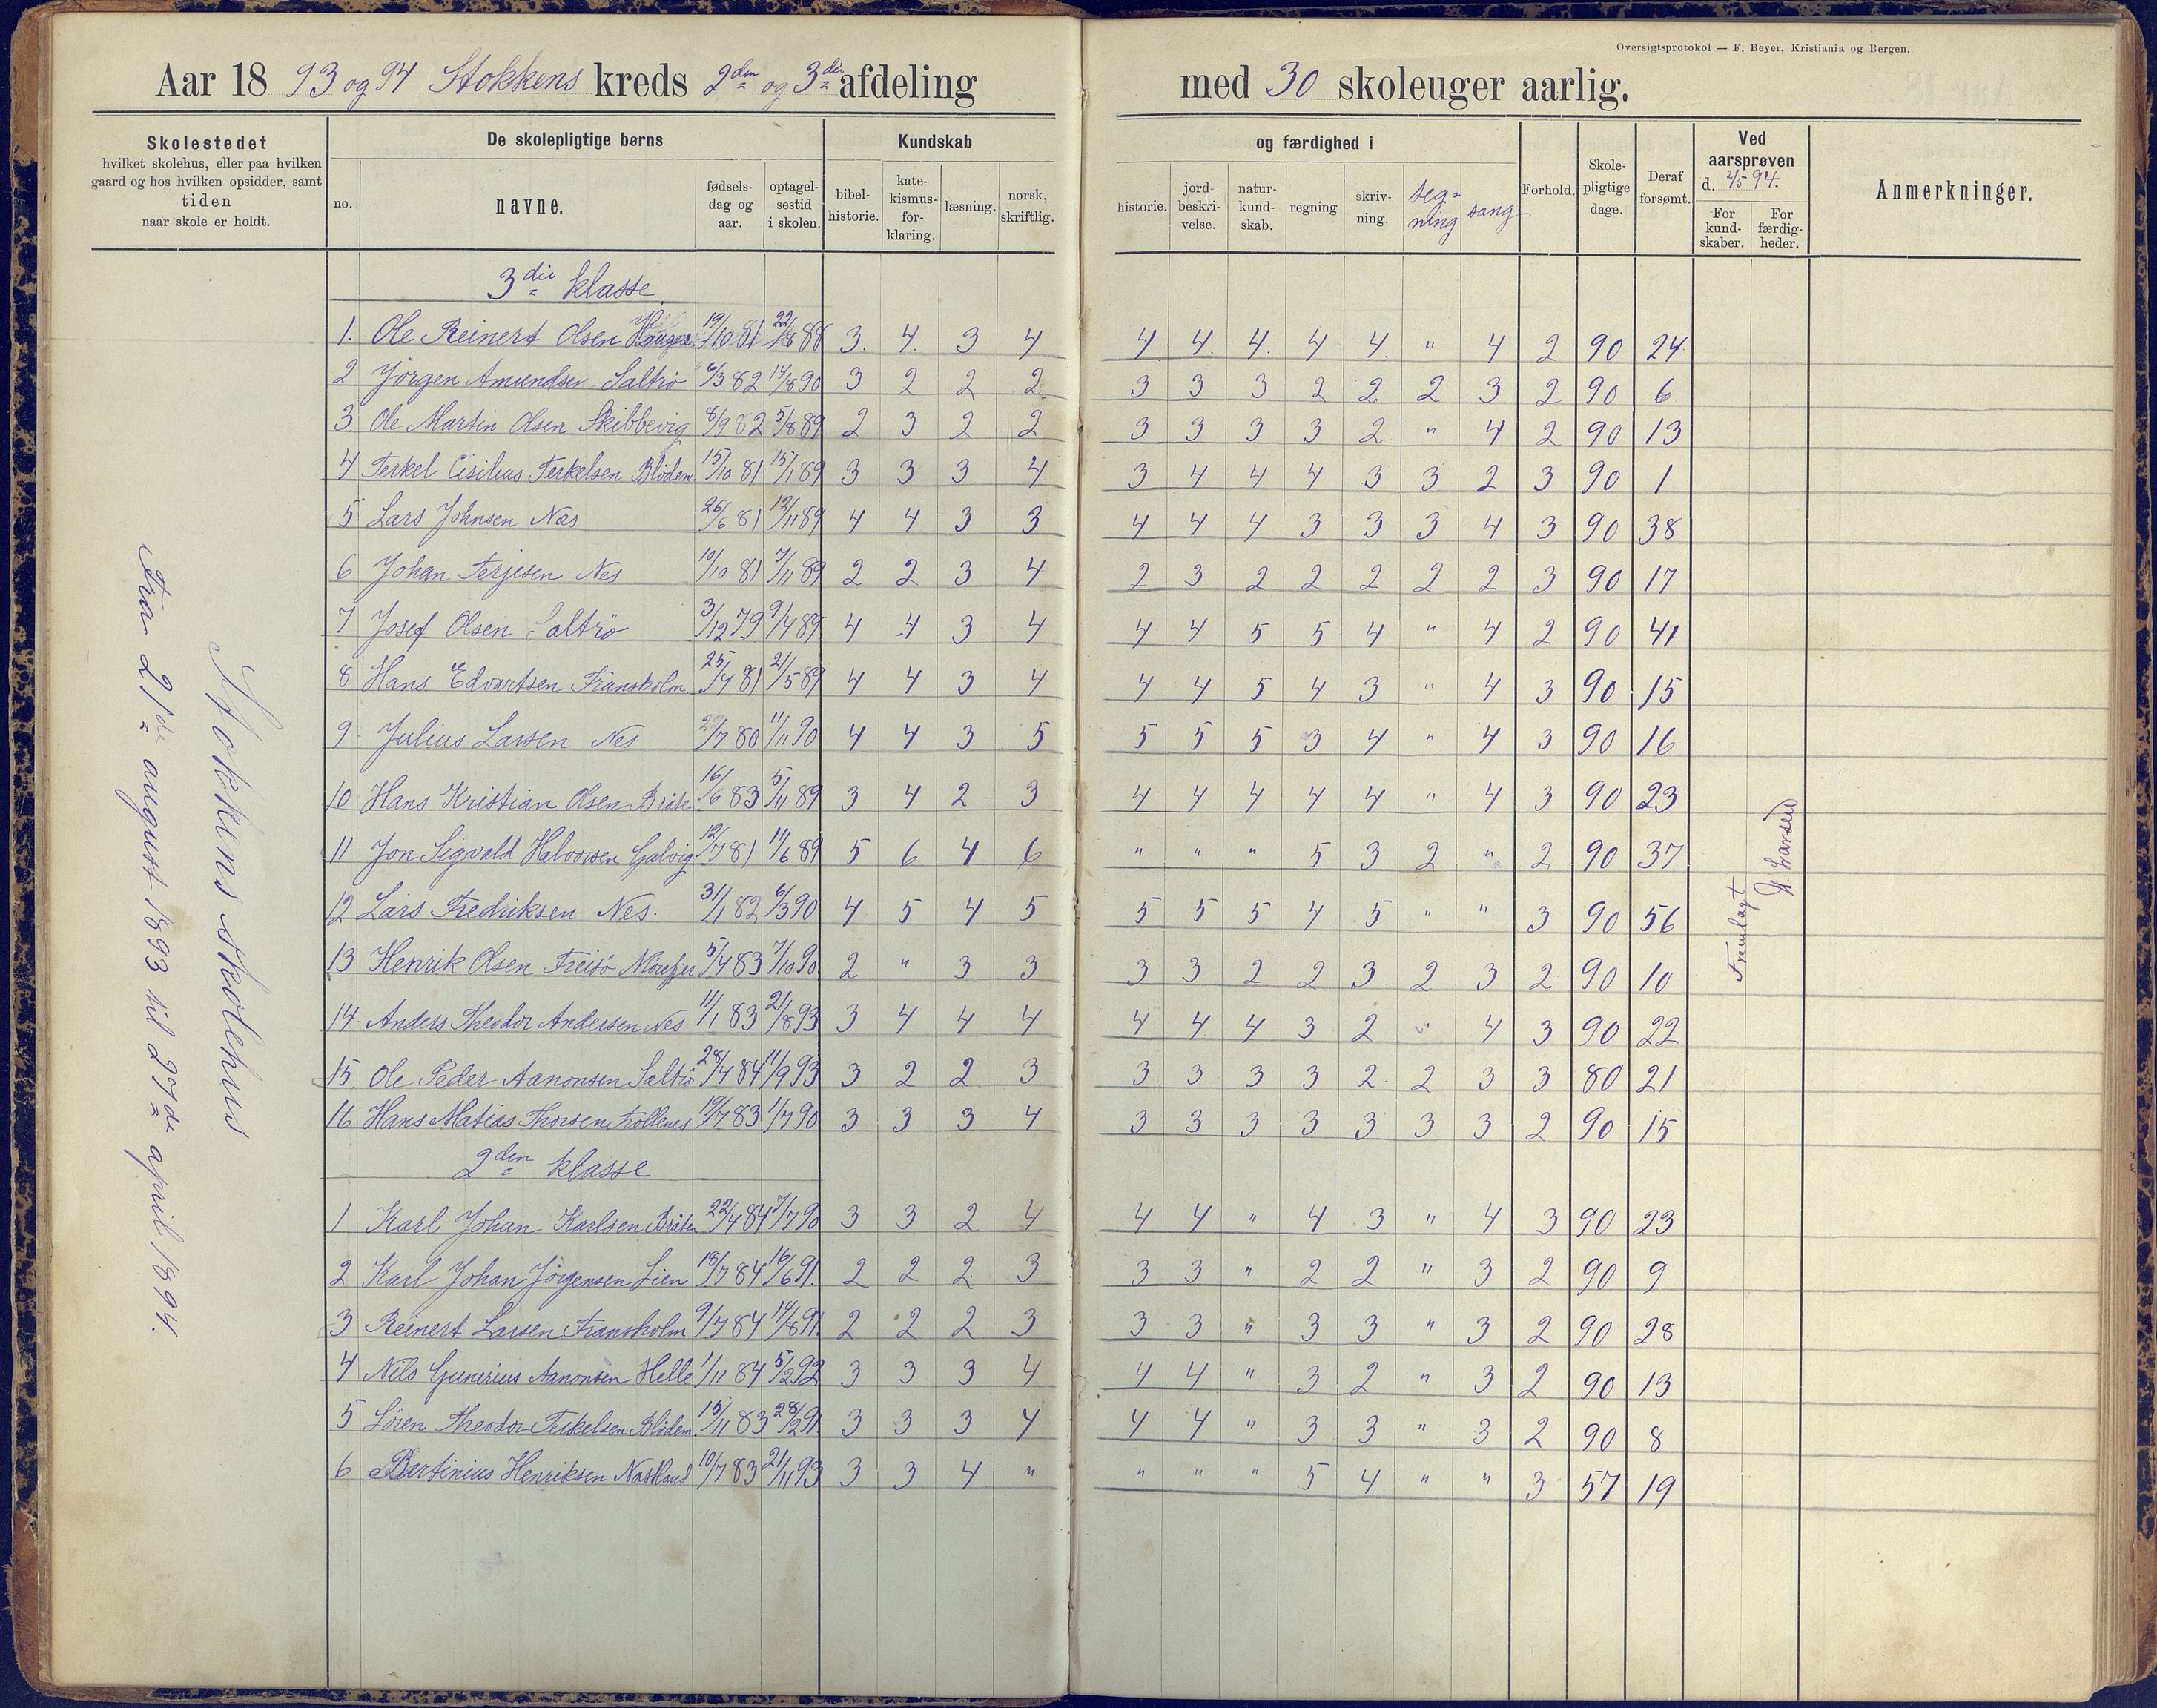 Oversigtsprotokol — F. Beyer, Kristiania og Bergen.
Aar 18 93 og 94 Stokkens kreds 2den og 3die afdeling med 30 skoleuger aarlig.
Skolestedet
hvilket skolehus, eller paa hvilken
gaard og hos hvilken opsidder, samt
tiden
naar skole er holdt.
De skolepligtige børns
no.
navne.
fødsels-
dag og
aar.
optagel-
sestid
i skolen.
Kundskab
bibel-
historie.
kate-
kismus-
for-
klaring.
læsning.
norsk,
skriftlig.
og færdighed i
historie.
jord-
beskri-
velse.
natur-
kund-
skab.
regning
skriv-
ning.
teg-
ning
sang
Forhold.
Skole-
pligtige
dage.
Deraf
forsømt.
Ved
aarsprøven
d. 2/5 94.
For
kund-
skaber.
For
færdig-
heder.
Anmerkninger.
Stokkens skolehus
Fra 21de august 1893 til 27de april 1894.
3die klasse
1. Ole Reinert Olsen 19/10 81 22/8 88 3. 4. 3 4 4 4. 4. 4 4. " 4 2 90 24
2 Jørgen Amundsen Saltrø 6/3 82 14/8 90 3 2 2 2 3 3 3 2 2 2 3 2 90 6
3 Ole Martin Olsen Skibbevig 8/9 82 5/8 89 2 3 2 2 3 3 3 3 2 " 4 2 90 13
4 Terkel Cisilius Terkelsen Blödem. 15/10 81 15/1 89 3 3 3 4 3 4 4 4 3 3 2 3 90 1
5 Lars Johnsen Næs 26/6 81 12/11 89 4 4 3 3 4 4 4 3 3 3 4 3 90 38
6 Johan Terjesen Nes 10/10 81 7/11 89 2 2 3 4 2 3 2 2 2 2 2 3 90 17
7 Josef Olsen Saltrö 3/12 79 9/4 89 4 4 3 4 4 4 5 5 4 " 4 2 90 41
8 Hans Edvartsen Fransholm 25/4 81 21/5 89 4 4 3 4 4 4 5 4 3 " 4 3 90 15
9 Julius Larsen Nes 29/7 80 11/11 90 4 4 3 5 5 5 5 3 4 " 4 3 90 16
10 Hans Kristian Olsen Bråten 16/6 83 5/11 89 3 4 2 3 4 4 4 4 4 " 4 3 90 23
11 Jon Sigvald Halvorsen Galvig 12/7 81 11/6 89 5 6 4 6 " " " 5 3 2 " 2 90 37
12 Lars Fredriksen Nes. 31/1 82 6/3 90 4 5 4 5 5 5 5 4 5 " " 3 90 56
13 Henrik Olsen 5/4 83 7/10 90 2 " 3 3 3 3 2 2 3 2 3 2 90 10
14 Anders Theodor Andersen Nes 11/1 83 21/8 93 3 4 4 4 4 4 4 3 2 " 4 3 90 22
15 Ole Peder Aanonsen Saltrö 28/4 84 11/9 93 3 2 2 3 3 3 3 3 2 2 3 3 80 21
16 Hans Matias Thorsen Trollenes 19/7 83 1/7 90 3 3 3 4 3 3 3 3 3 3 3 2 90 15
2den klasse
1 Karl Johan Karlsen Bråten 22/4 84 7/7 90 3 3 2 4 4 4 " 4 3 " 4 3 90 23
2 Karl Johan Jörgensen Lien 18/7 84 16/6 91. 2 2 2 3 3 3 " 2 2 " 3 2 90 9
3 Reinert Larsen Fransholm 9/7 84 14/8 91. 2 2 2 3 3 3 " 3 3 " 3 2 90 28
4 Nils Gunerius Aanonsen Helle 1/11 84 5/2 92 3 3 3 4 4 4 " 3 2 " 3 2 90 13
5 Sören Theodor Terkelsen Blödem. 15/11 83 28/2 91 3 3 3 4 4 4 " 3 3 " 3 2 90 8
6 Bertinius Henriksen 10/7 83 21/11 93 3 3 4 " " " " 5 4 " " 3 57 19
Fremlagt
Larsen